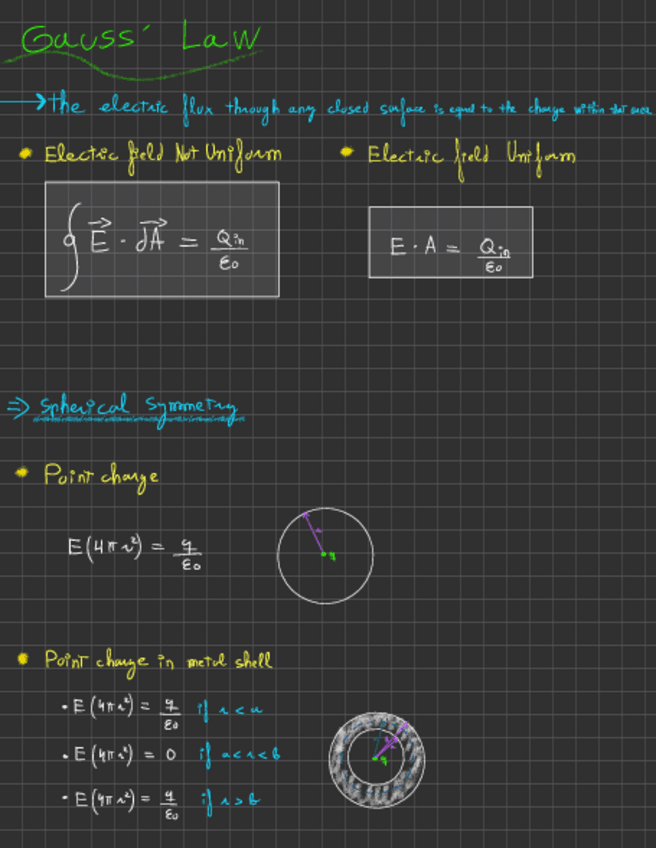 Gauss' Law
→ the electric flux through any closed surface is equal to the charge within that area
• Electric field Not Uniform
• Electric field Uniform
∮ E⃗ · dA⃗ = Qin/ε0
E · A = Qin/ε0
⇒ Spherical Symmetry
• Point charge
E(4πr²) = q/ε0
r
q
• Point charge in metal shell
• E(4πr²) = q/ε0 if r<a
• E(4πr²) = 0 if a<r<b
• E(4πr²) = q/ε0 if r>b
q